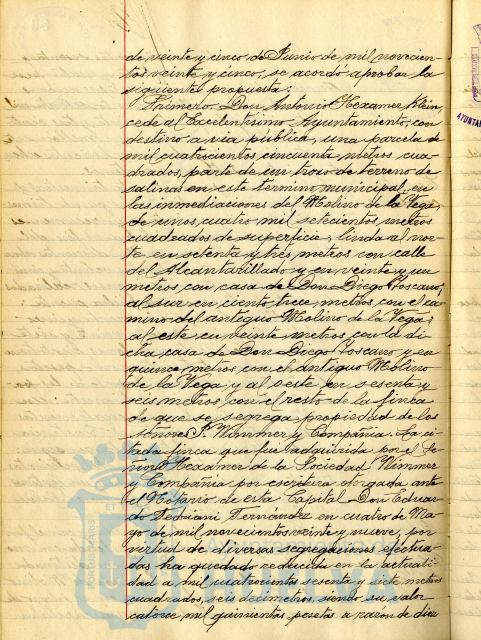 de veinte y cinco de Junio de mil novecien-
tos veinte y cinco, se acordó aprobar la
siguiente propuesta:
Primero. Don Antonio Hexamer Klein
cede al Excelentísimo Ayuntamiento, con
destino a via pública, una parcela de
mil cuatrocientos cincuenta metros cua-
drados, parte de un trozo de terreno de
salinas en este término municipal, en
las inmediaciones del Molino de la Vega,
de unos cuatro mil setecientos metros
cuadrados de superficie, linda al nor-
te en setenta y tres metros con calle
del Alcantarillado y en veinte y un
metros con casa de Don Diego Toscano,
al sur en ciento trece metros con el ca-
mino del antiguo Molino de la Vega;
al este en veinte metros con la di-
cha casa de Don Diego Toscano y en
quince metros con el antiguo Molino
de la Vega y al oeste en sesenta y
seis metros con el resto de la finca
de que se segrega propiedad de los
Señores Wimmer y Compañía. La ci-
tada finca que fue adquirida por el Se-
ñor Hexamer de la Sociedad Wimmer
y Compañía por escritura otorgada ante
el Notario de esta Capital Don Eduar-
do Fernández en cuatro de Ma-
yo de mil novecientos veinte y nueve, por
virtud de diversas segregaciones efectua-
das ha quedado reducida en la actuali-
dad a mil cuatrocientos sesenta y siete metros
cuadrados, seis decímetros, siendo su valor
catorce mil quinientas pesetas a razón de diez